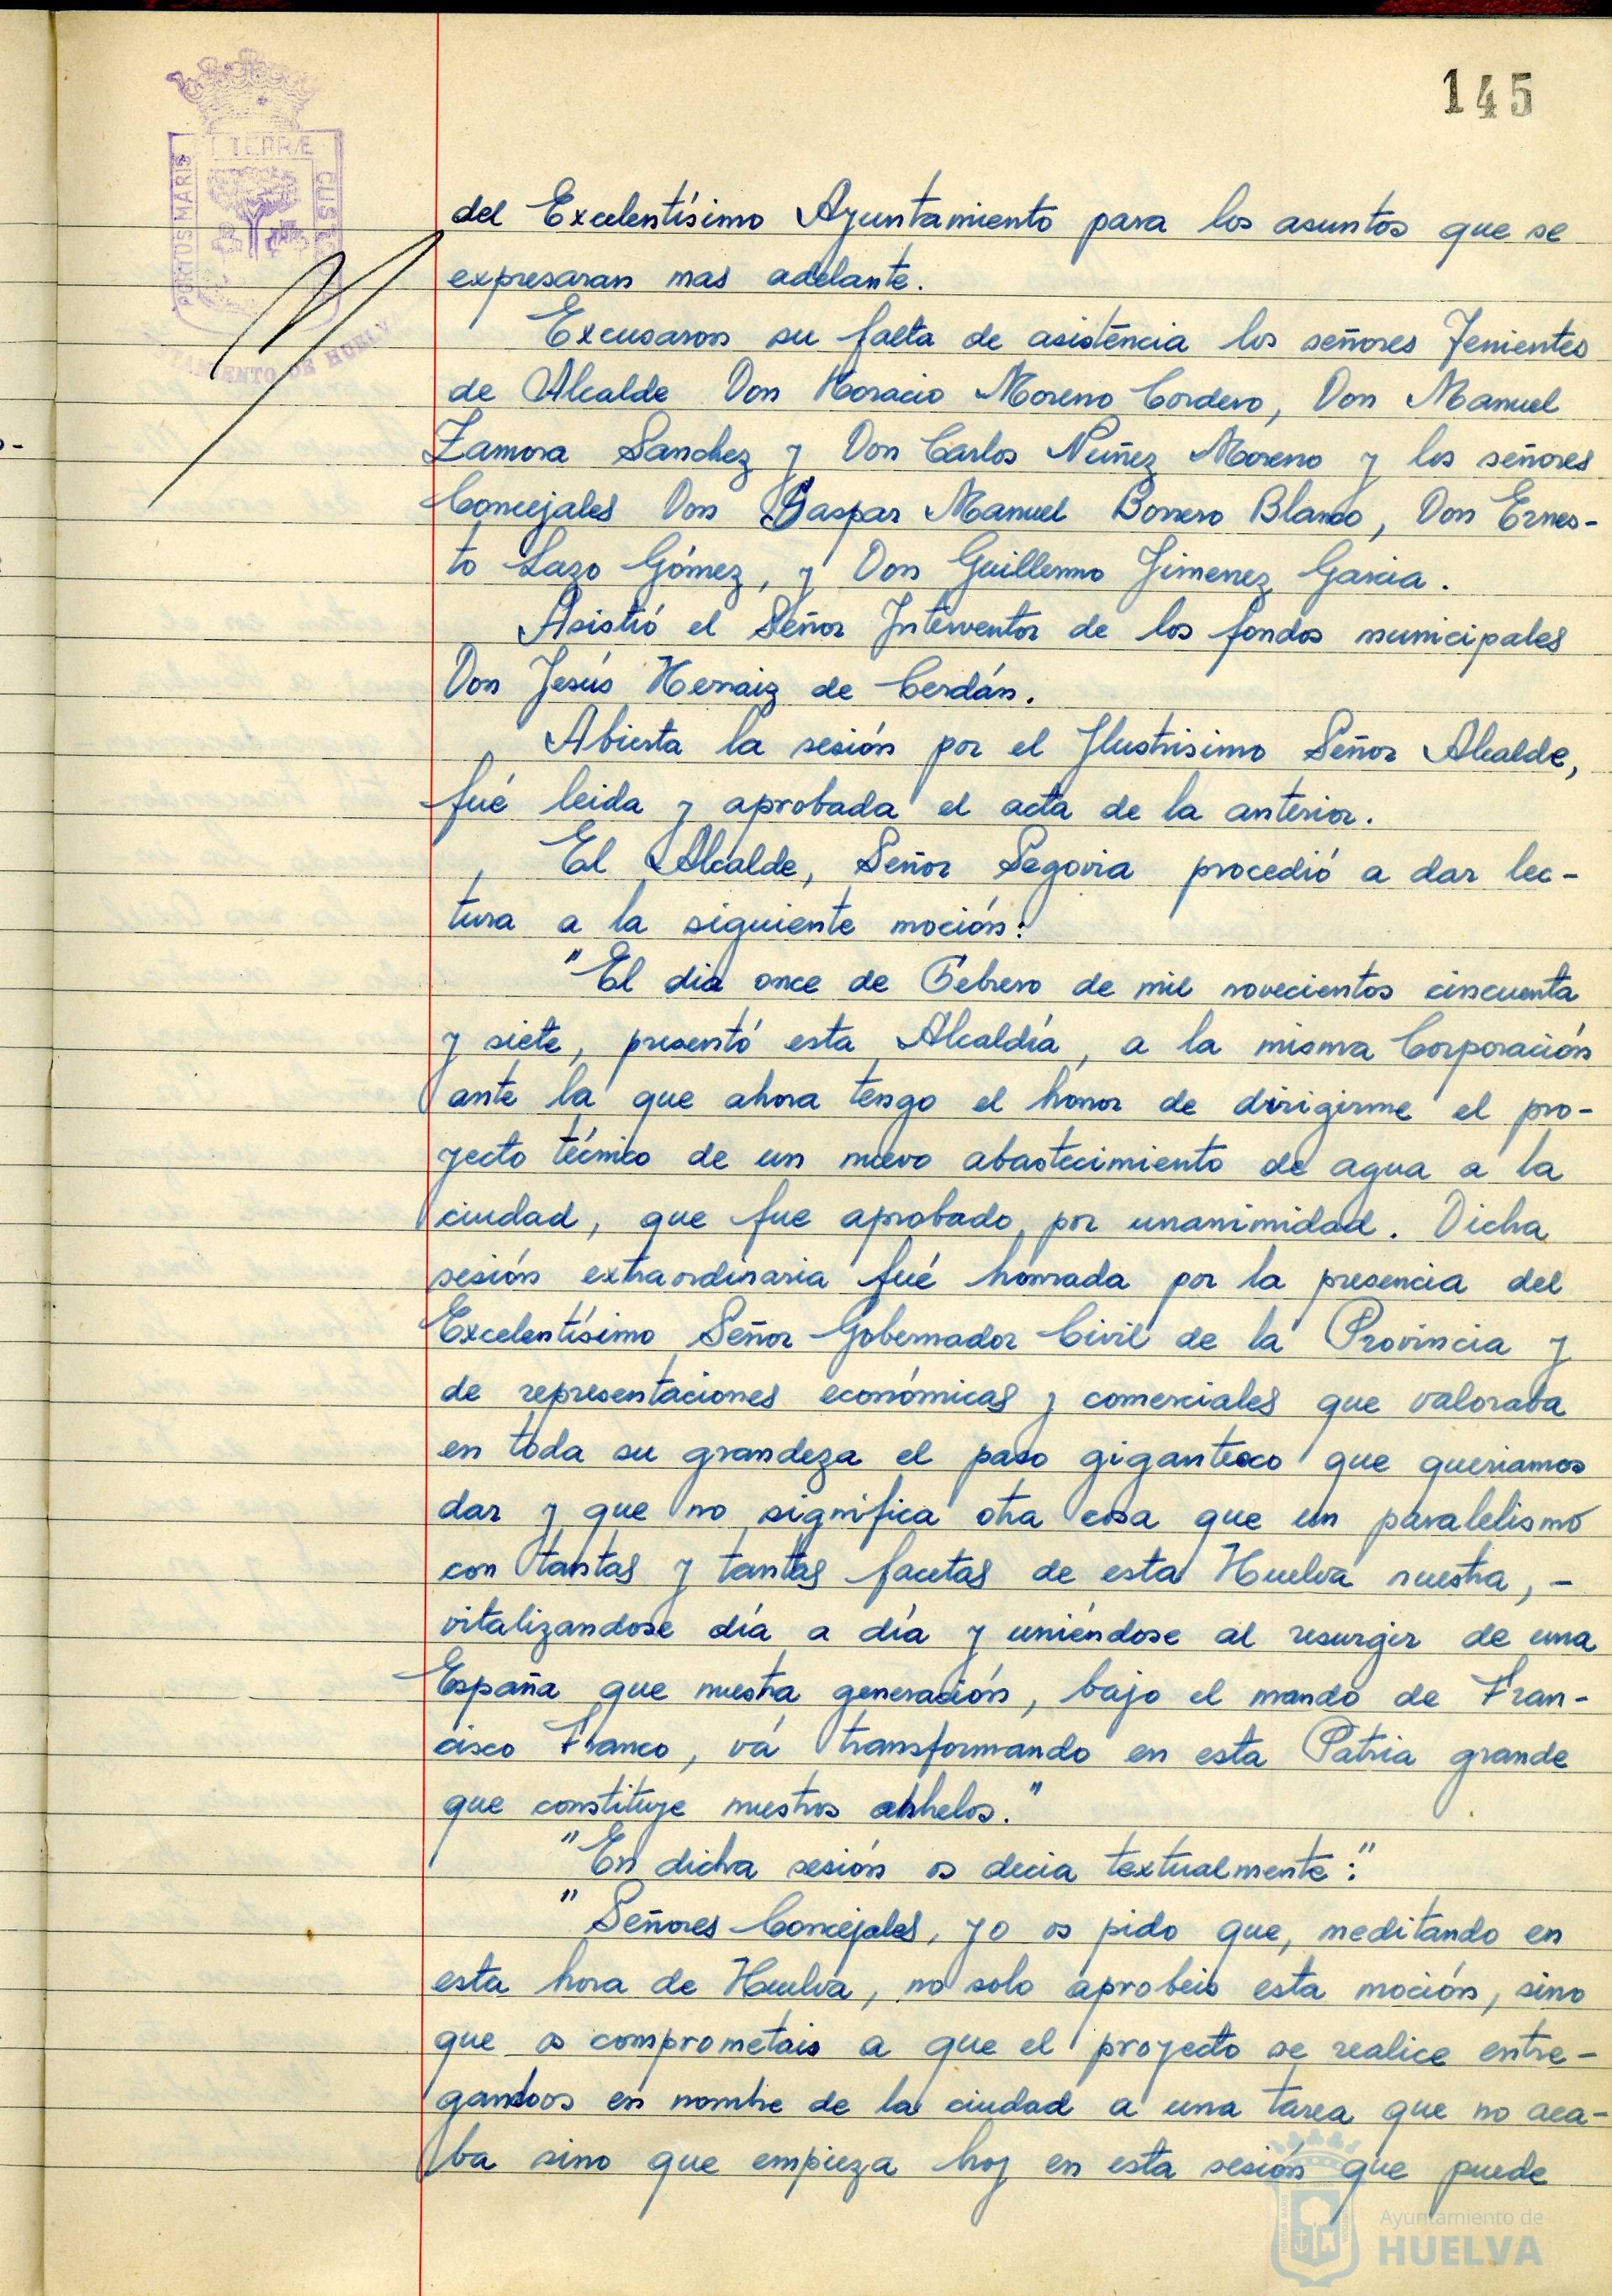 145
TERRÆ
PORTUS MARIS
CUSTO
TAMIENTO DE HUELV
del Excelentísimo Ayuntamiento para los asuntos que se
expresaran mas adelante.
Excusaron su falta de asisténcia los señores Tenientes
de Alcalde Don Horacio Moreno Cordero, Don Manuel
Zamora Sanchez y Don Carlos Núñez Moreno y los señores
Concejales Don Gaspar Manuel Borrero Blanco, Don Ernes-
to Lazo Gómez, y Don Guillermo Jimenez Garcia.
Asistió el Señor Interventor de los fondos municipales
Don Jesús Hernaiz de Cerdán.
Abierta la sesión por el Ilustrisimo Señor Alcalde,
fué leida y aprobada el acta de la anterior.
El Alcalde, Señor Segovia procedió a dar lec-
tura a la siguiente moción:
"El dia once de Febrero de mil novecientos cincuenta
y siete, presentó esta Alcaldía, a la misma Corporación
ante la que ahora tengo el honor de dirigirme el pro-
yecto técnico de un nuevo abastecimiento de agua a la
ciudad, que fue aprobado por unanimidad. Dicha
sesión extraordinaria fué honrada por la presencia del
Excelentísimo Señor Gobernador Civil de la Provincia y
de representaciones económicas y comerciales que valoraba
en toda su grandeza el paso gigantesco que queriamos
dar y que no significa otra cosa que un paralelismo
con tantas y tantas facetas de esta Huelva nuestra, -
vitalizandose día a día y uniéndose al resurgir de una
España que nuestra generación, bajo el mando de Fran-
cisco Franco, vá transformando en esta Patria grande
que constituye nuestros anhelos."
"En dicha sesión os decia textualmente:"
"Señores Concejales, yo os pido que, meditando en
esta hora de Huelva, no solo aprobeis esta moción, sino
que os comprometais a que el proyecto se realice entre-
gandoos en nombre de la ciudad a una tarea que no aca-
ba sino que empieza hoy en esta sesión que puede
Ayuntamiento de
HUELVA